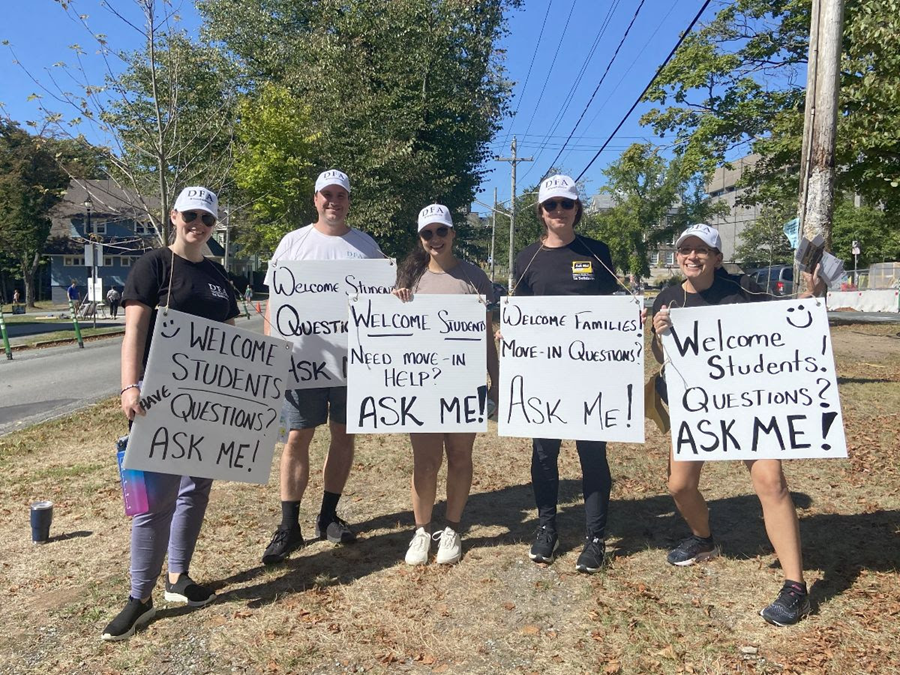 DFA
DFA
DFA
DFA
DFA
DFA
WELCOME
STUDENTS
HAVE
QUESTIONS?
ASK ME!
WELCOME STUDEN
QUESTION
ASK M
WELCOME STUDENTS
NEED MOVE-IN
HELP?
ASK ME!
WELCOME FAMILIES!
MOVE-IN QUESTIONS?
ASK ME!
WELCOME
STUDENTS!
QUESTIONS?
ASK ME!